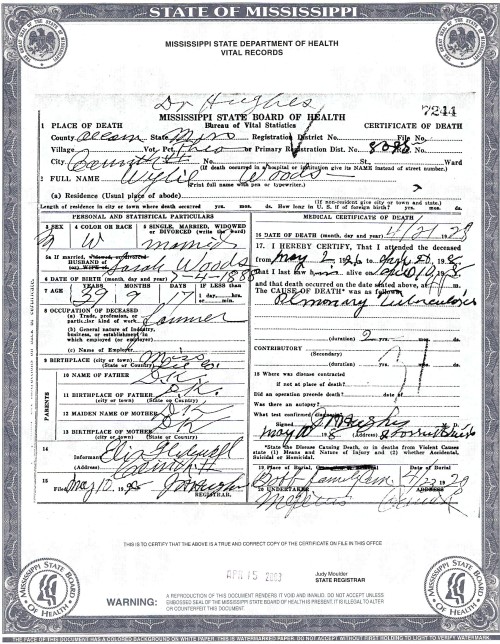 STATE OF MISSISSIPPI
MISSISSIPPI STATE DEPARTMENT OF HEALTH
VITAL RECORDS
Dr Hughes
7211
MISSISSIPPI STATE BOARD OF HEALTH
1 PLACE OF DEATH Bureau of Vital Statistics CERTIFICATE OF DEATH
County State Miss Registration District No. File No.
Village Vot. Pct. or Primary Registration Dist. No. No.
City Corinth No. St., Ward
(If death occurred in a hospital or institution give its NAME instead of street number.)
2 FULL NAME Wylie Woods
(Print full name with pen or typewriter.)
(a) Residence (Usual place of abode)
(If non-resident give city or town and state)
Length of residence in city or town where death occurred yrs. mos. ds. How long in U. S. if of foreign birth? yrs. mos. ds.
PERSONAL AND STATISTICAL PARTICULARS
3 SEX 4 COLOR OR RACE 5 SINGLE, MARRIED, WIDOWED OR DIVORCED (Write the word)
M W married
5a If married, widowed, or divorced
HUSBAND of
(or) WIFE of Sarah Woods
6 DATE OF BIRTH (month, day and year) 7-4-1888
7 AGE Years Months Days IF LESS than
39 9 17 1 day, hrs.
or min.
8 OCCUPATION OF DECEASED
(a) Trade, profession, or
particular kind of work Farmer
(b) General nature of industry,
business, or establishment in
which employed (or employer)
(c) Name of Employer
9 BIRTHPLACE (city or town) Miss
(State or Country)
PARENTS
10 NAME OF FATHER DK
11 BIRTHPLACE OF FATHER DK
(city or town) (State or Country)
12 MAIDEN NAME OF MOTHER DK
13 BIRTHPLACE OF MOTHER DK
(city or town) (State or Country)
14
Informant
(Address) Corinth
15
Filed May 10 REGISTRAR.
MEDICAL CERTIFICATE OF DEATH
16 DATE OF DEATH (month, day and year) 4/21 1928
17. I HEREBY CERTIFY, That I attended the deceased
from May
that I last saw alive on
and that death occurred on the date stated above, at m.
The CAUSE OF DEATH* was as follows:
Pulmonary Tuberculosis
(duration) 2 yrs. mos. ds.
CONTRIBUTORY
(Secondary)
(duration) yrs. mos. ds.
18 Where was disease contracted
if not at place of death?
Did an operation precede death? date of
Was there an autopsy?
What test confirmed diagnosis?
Signed J M Hughes M. D.
May 10 (Address)
*State the Disease Causing Death, or in deaths from Violent Causes
state (1) Means and Nature of Injury and (2) whether Accidental,
Suicidal or Homicidal.
19 Place of Burial Date of Burial
family cem 4/23 1928
20 UNDERTAKER ADDRESS
McPeters Corinth
THIS IS TO CERTIFY THAT THE ABOVE IS A TRUE AND CORRECT COPY OF THE CERTIFICATE ON FILE IN THIS OFFICE
APR 15 2003
Judy Moulder
STATE REGISTRAR
MISSISSIPPI STATE BOARD OF HEALTH
MISSISSIPPI STATE BOARD OF HEALTH
WARNING:
A REPRODUCTION OF THIS DOCUMENT RENDERS IT VOID AND INVALID. DO NOT ACCEPT UNLESS
EMBOSSED SEAL OF THE MISSISSIPPI STATE BOARD OF HEALTH IS PRESENT. IT IS ILLEGAL TO ALTER
OR COUNTERFEIT THIS DOCUMENT.